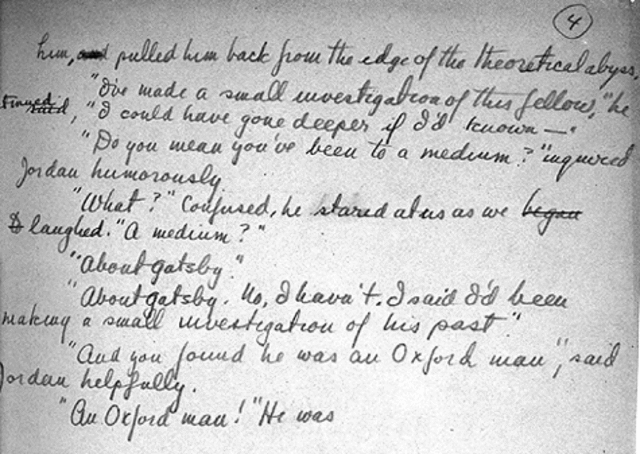 4
him, and pulled him back from the edge of the theoretical abyss,
"I've made a small investigation of this fellow," he
, "I could have gone deeper if I'd known—"
"Do you mean you've been to a medium?" inquired
Jordan humorously
"What?" Confused, he stared at us as we began
laughed. "A medium?"
"About gatsby."
"About gatsby. No, I havn't. I said I'd been
making a small investigation of his past."
"And you found he was an Oxford man", said
Jordan helpfully.
"An Oxford man!" He was